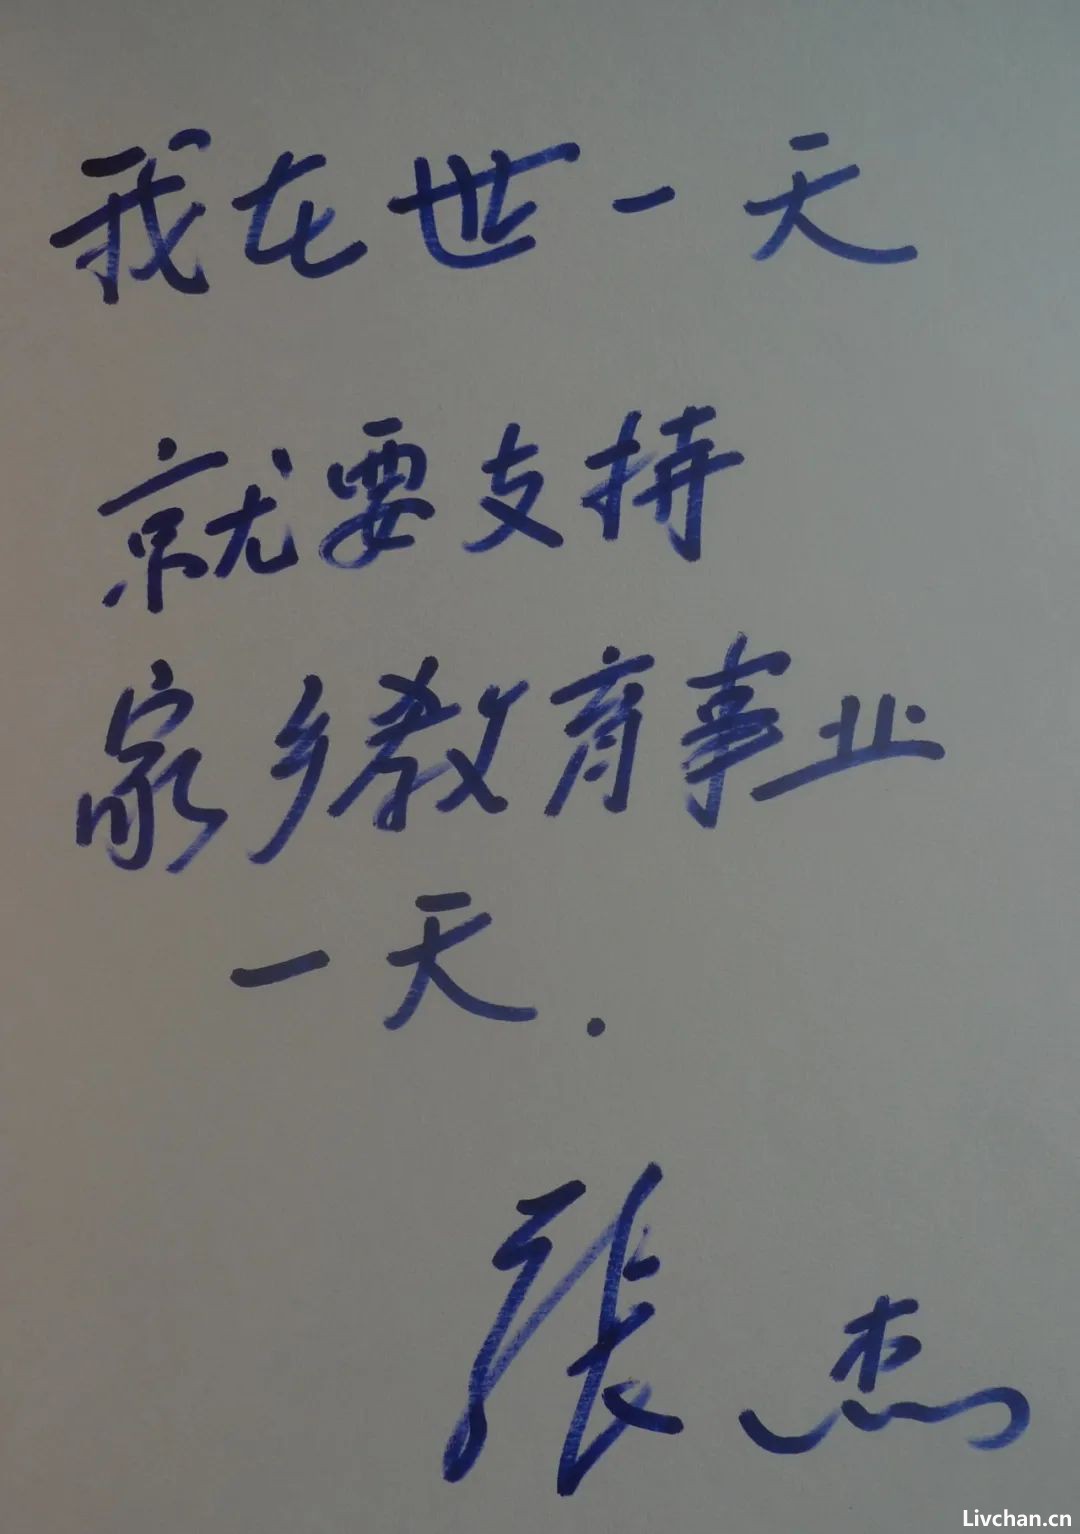 我在世一天
就要支持
家乡教育事业
一天.
张杰
Livchan.cn